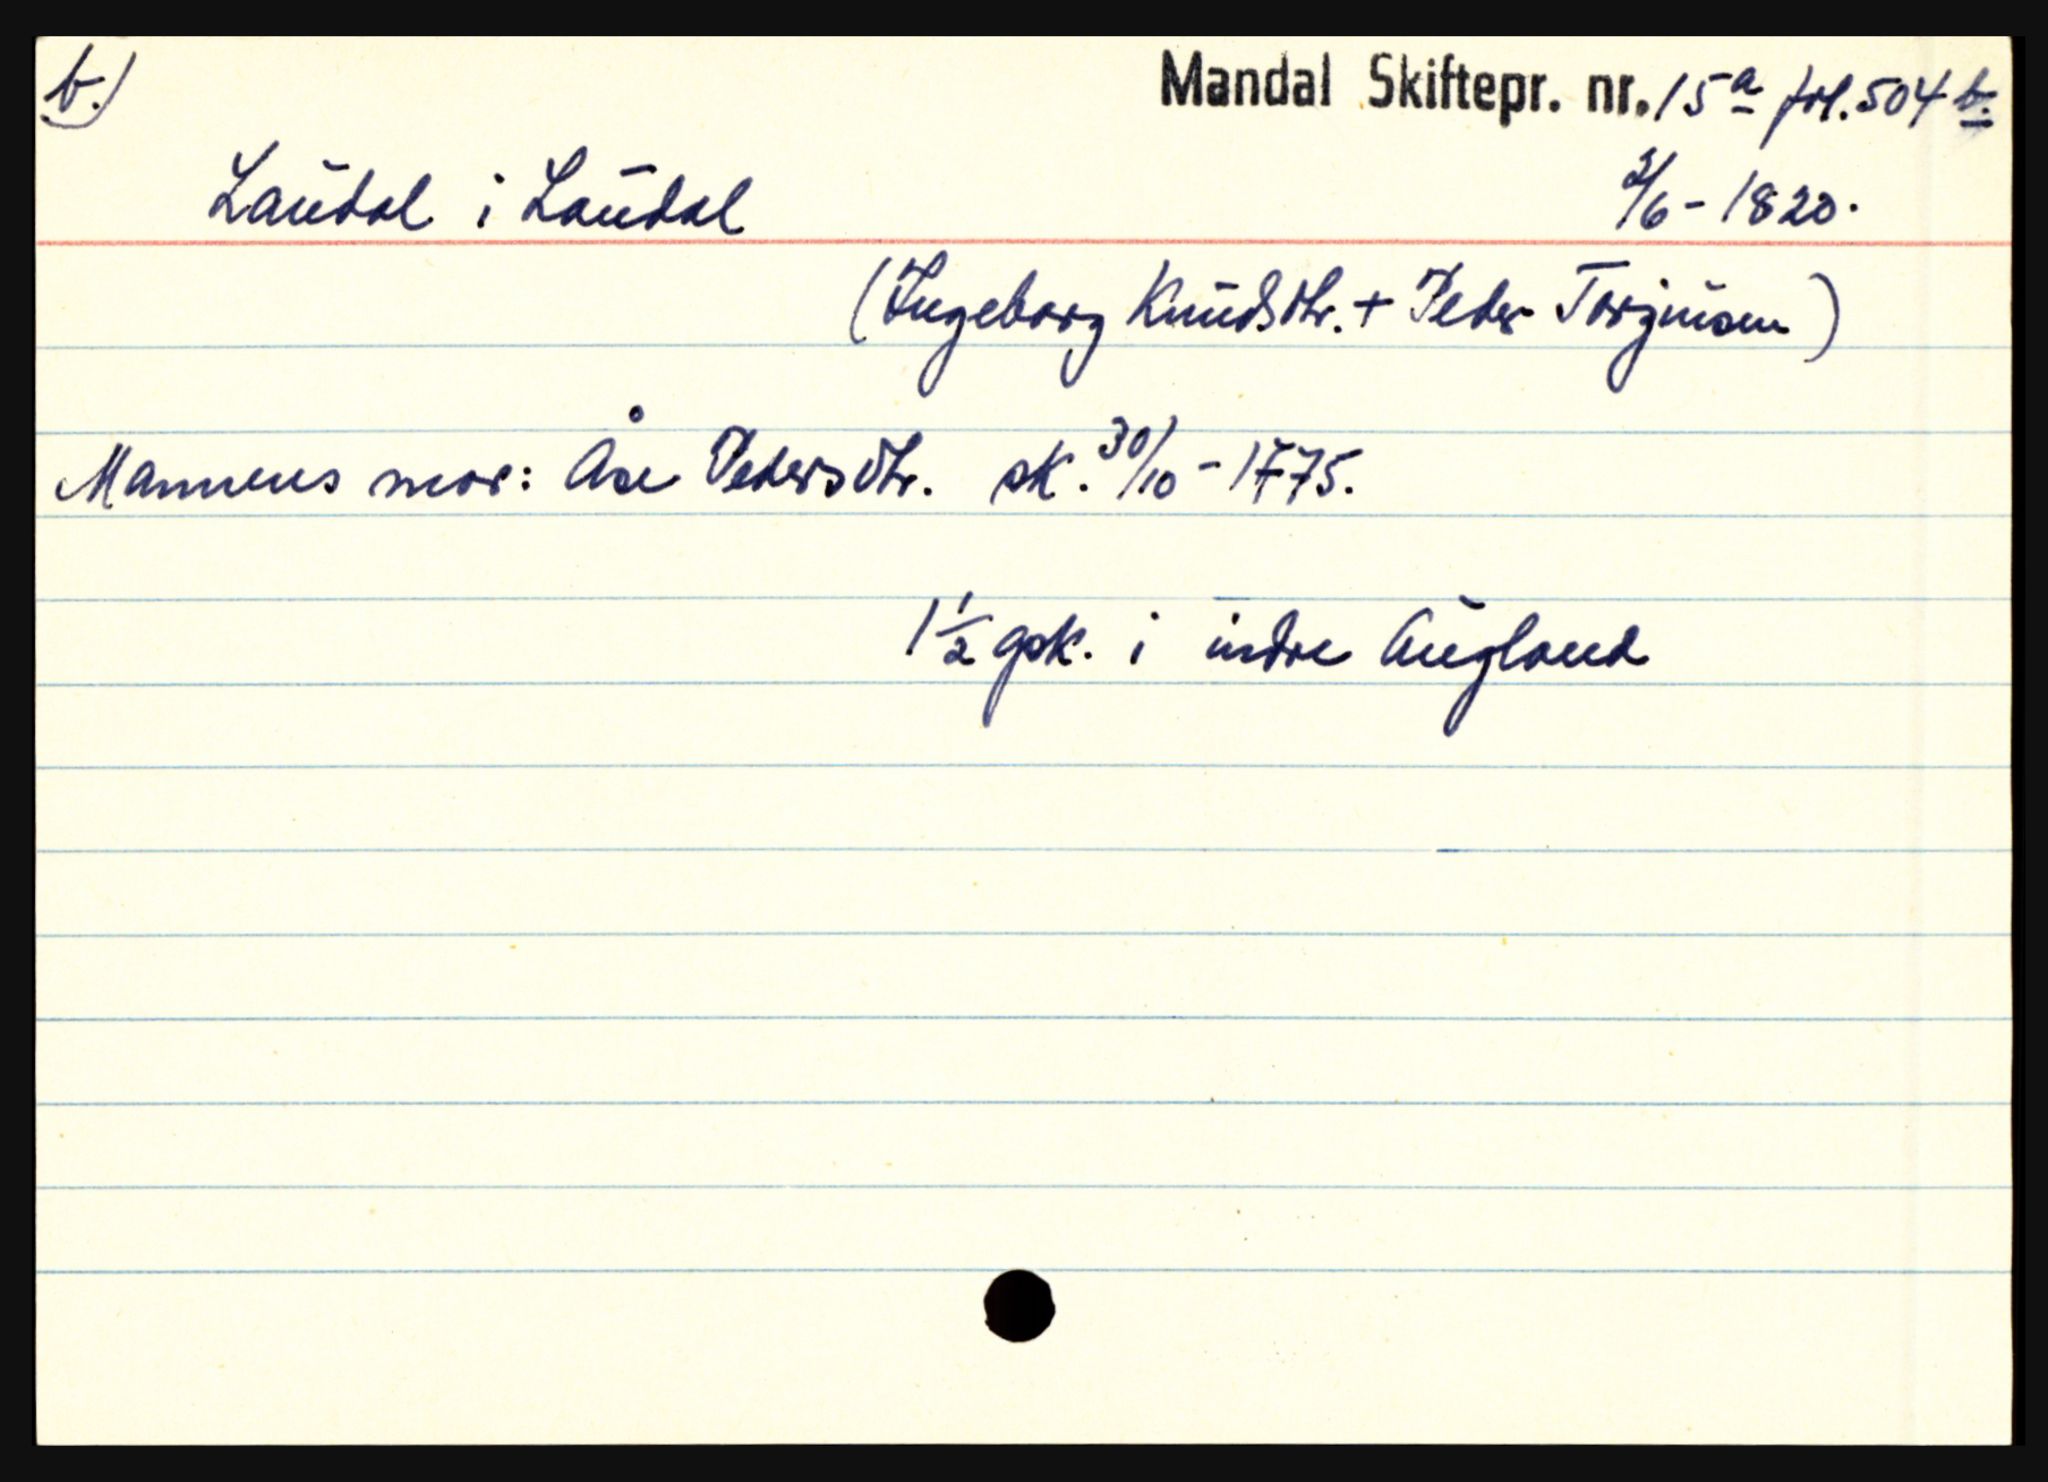 b.) Mandal Skiftepr. nr. 15a fol. 504 b.
Laudal i Laudal 2/6 - 1820.
(Ingeborg Knudsdtr. + Peder Torjusen)
Mannens mor: Åse Pedersdtr. sk. 30/10 - 1775.
1 1/2 gsk. i indre Augland